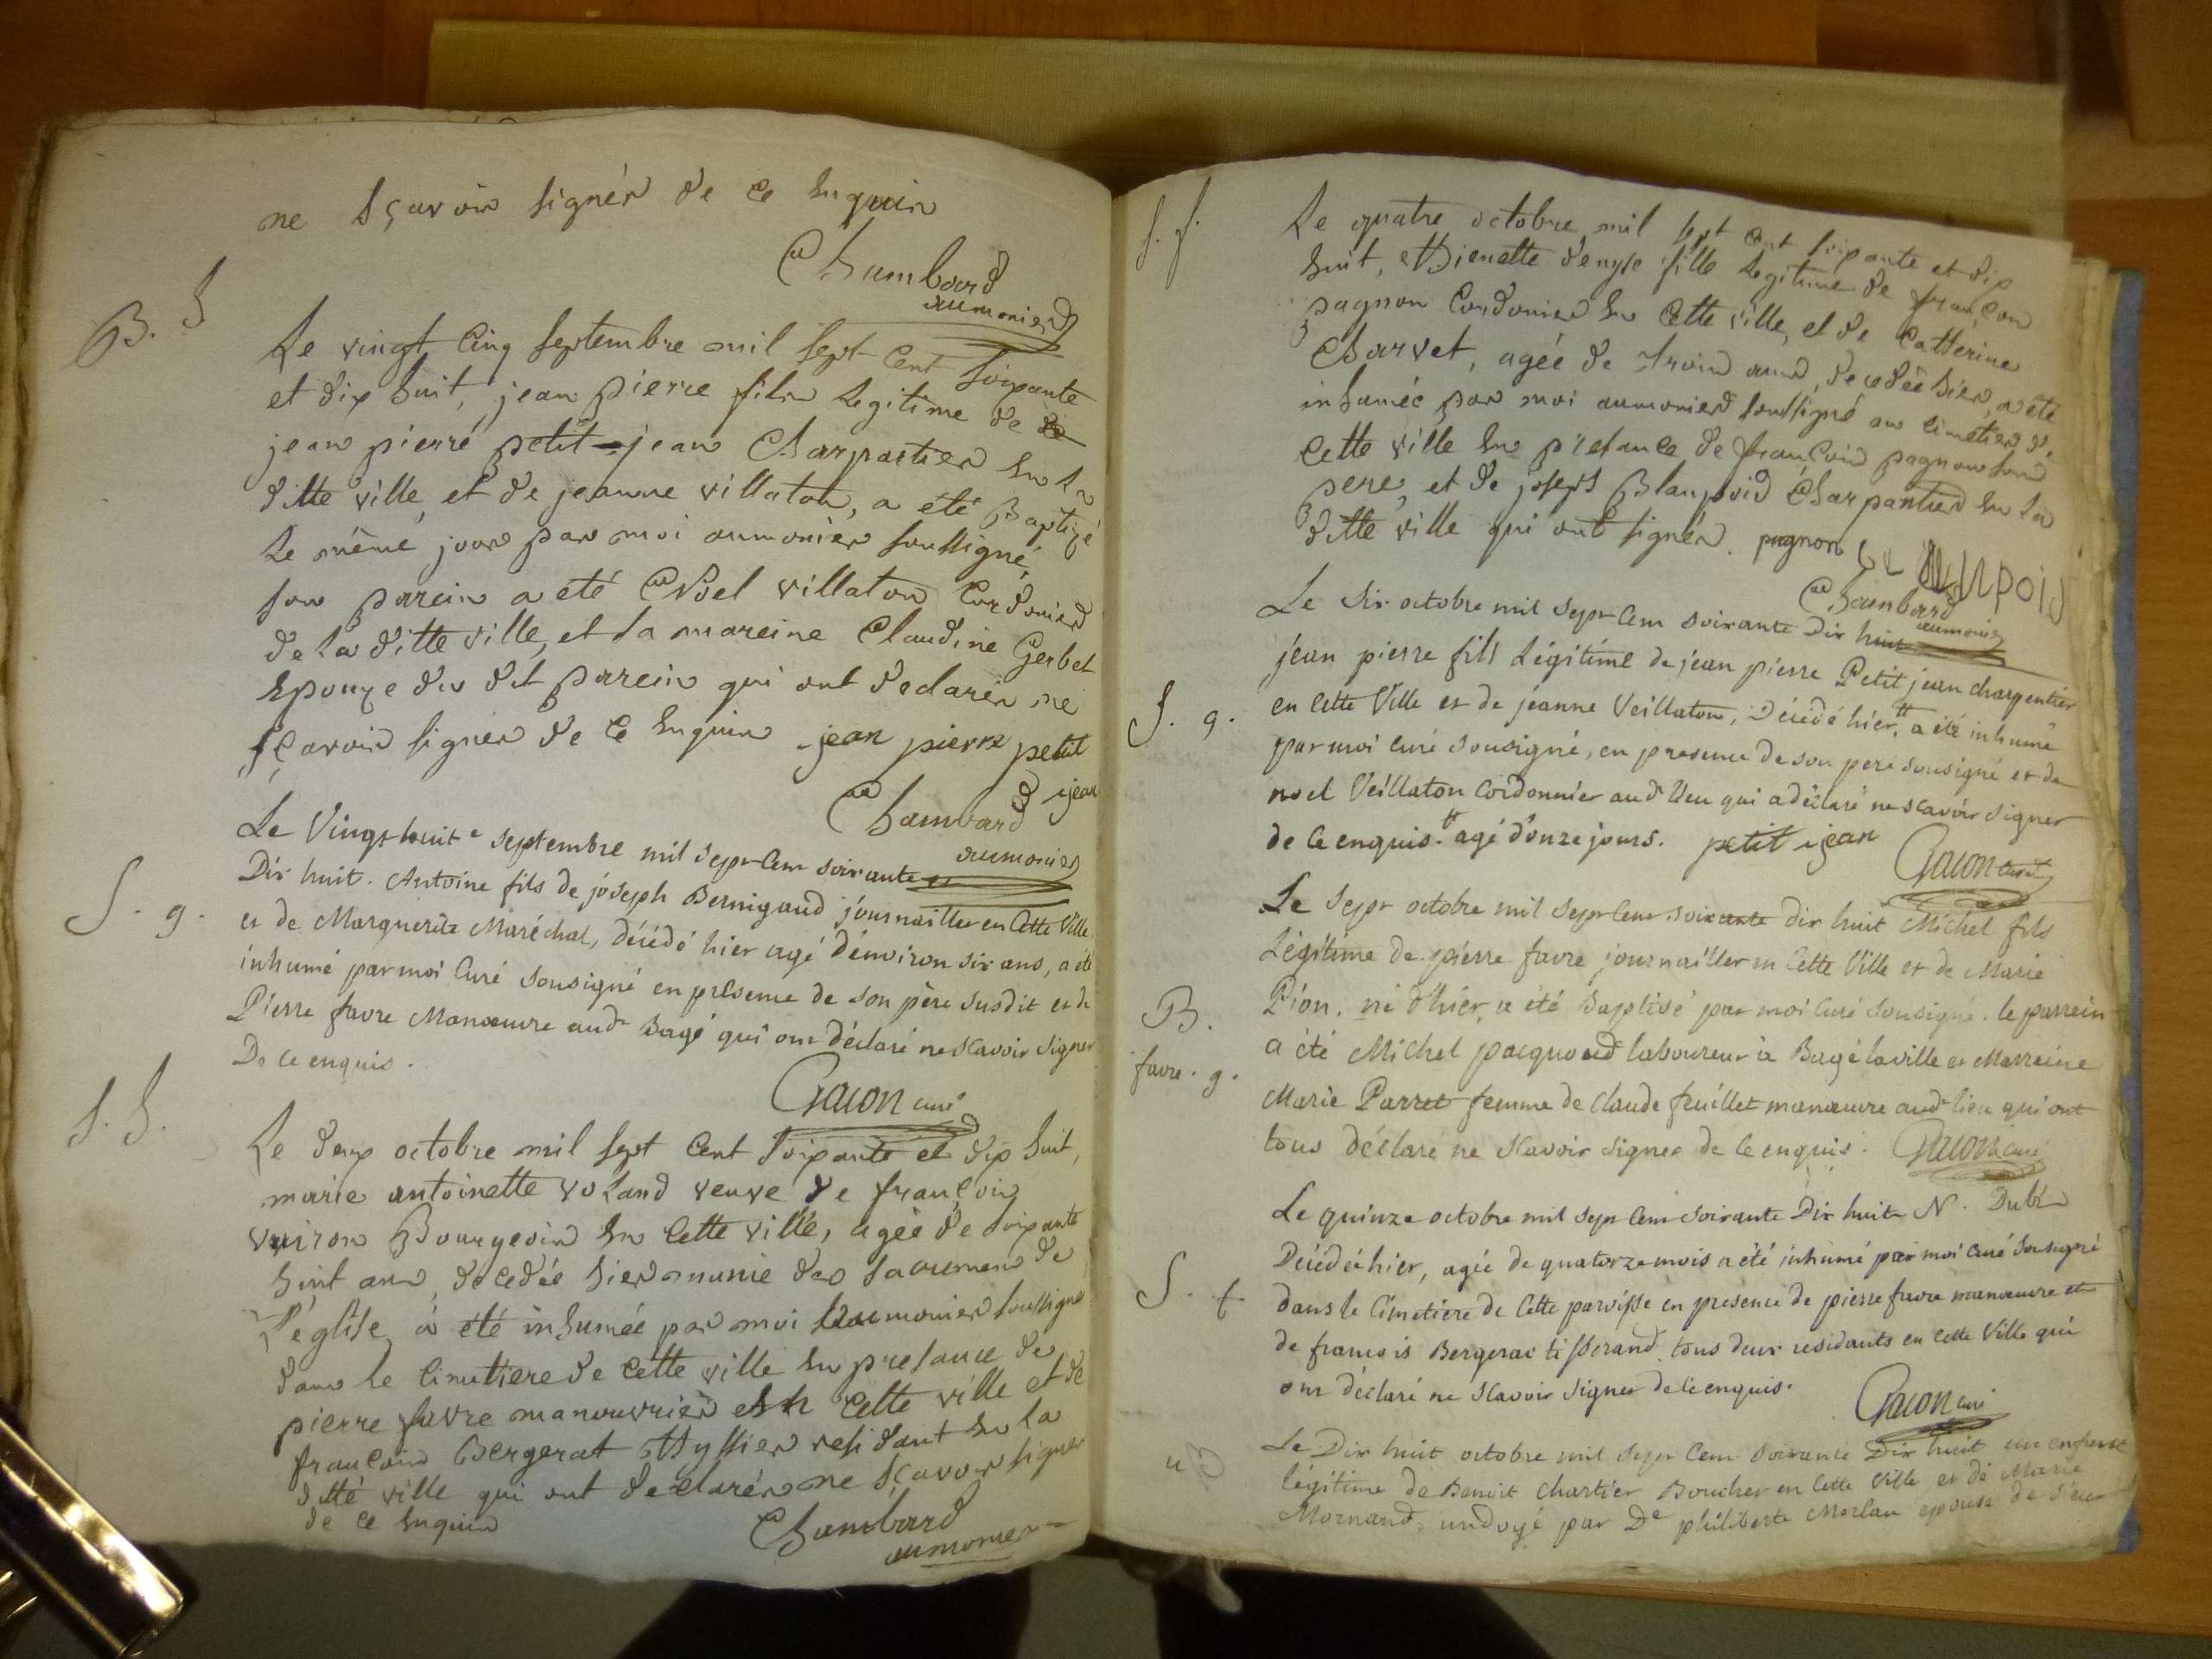 ne sçavoir signér de ce enquin
Chambard
aumonier
B. g
Le vingt cinq septembre mil sept cent soixante
et dix huit, jean pierre fils legitime de
jean pierre petit-jean Charpantier en la
ditte ville, et de jeanne villaton, a été Baptizé
le même jour par moi aumonier soussigné,
son parein a été Noel villaton Cordonier
de la ditte ville, et sa mareine Claudine Gerbet
epouze du dit parein qui ont declarér ne
sçavoir signer de ce enquin jean pierre petit
jean
Chambard
aumonier
S. g.
Le Vingt huit e septembre mil sept cent soixante et
Dix huit. Antoine fils de joseph Bernigaud journaillier en Cette Ville
et de Marguerite Maréchal, décédé hier agé d'environ six ans, a été
inhumé par moi Curé sousigné en présence de son père susdit et de
Pierre favre Manœuvre aud Bagé qui ont déclaré ne scavoir signer
De ce enquis.
Gacon curé
S. g.
Le deux octobre mil sept cent soixante et dix huit,
marie antoinette voland veuve de françois
vuiron Bourgeois en cette ville, agée de soixante
huit ans, decedée hier munie des sacremens de
l'église, a été inhumée par moi aumonier soussigné
dans le cimetiere de cette ville en presance de
pierre favre manouvrier en cette ville et de
françois Bergerat thyssier residant en la
ditte ville qui ont declarér ne sçavoir signer
de ce enquis
Chambard
aumonier
S. f.
Le quatre octobre mil sept cent soixante et dix
huit, denyse fille legitime de françois
pagnon Cordonier en cette ville, et de Catherine
Charvet, agée de trois ans, decedée hier, a été
inhumée par moi aumonier soussigné au cimetier de
cette ville en presance de françois pagnon son
pere, et de joseph Blanpoid Charpantier en la
ditte ville qui ont signér. pagnon
Chambard
aumonier
Le Six octobre mil sept cent soixante Dix huit
jean pierre fils Légitime de jean pierre Petit jean charpentier
S. g.
en Cette Ville et de jeanne Veillaton, Décédé hier, a été inhumé
par moi curé sousigné, en presence de son pere sousigné et de
noel Veillaton Cordonnier aud lieu qui a déclaré ne scavoir signer
de ce enquis. agé d'onze jours. petit jean
Gacon curé
Le Sept octobre mil sept cent soixante dix huit Michel fils
Légitime de pierre favre journaillier en Cette Ville et de Marie
B.
Pion, né d'hier, a été baptisé par moi Curé sousigné. le parrein
favre. g.
a été Michel pacquoud laboureur à Bagé la ville et Marreine
Marie Parret femme de Claude feuillet manœuvre aud lieu qui ont
tous déclaré ne scavoir signer de ce enquis. Gacon curé
Le quinze octobre mil sept cent soixante Dix huit N.
Décédé hier, agée de quatorze mois a été inhumé par moi curé sousigné
S. f.
dans le Cimetière de Cette paroisse en presence de pierre favre manœuvre et
de francois Bergerac tisserand, tous deux residants en Cette Ville qui
ont déclaré ne scavoir signer de ce enquis.
Gacon curé
B
Le Dix huit octobre mil sept cent soixante Dix huit un enfant
légitime de Benoit Chartier Boucher en Cette Ville et de Marie
Mornand, undoyé par De philiberte Morlau epouse de sieur